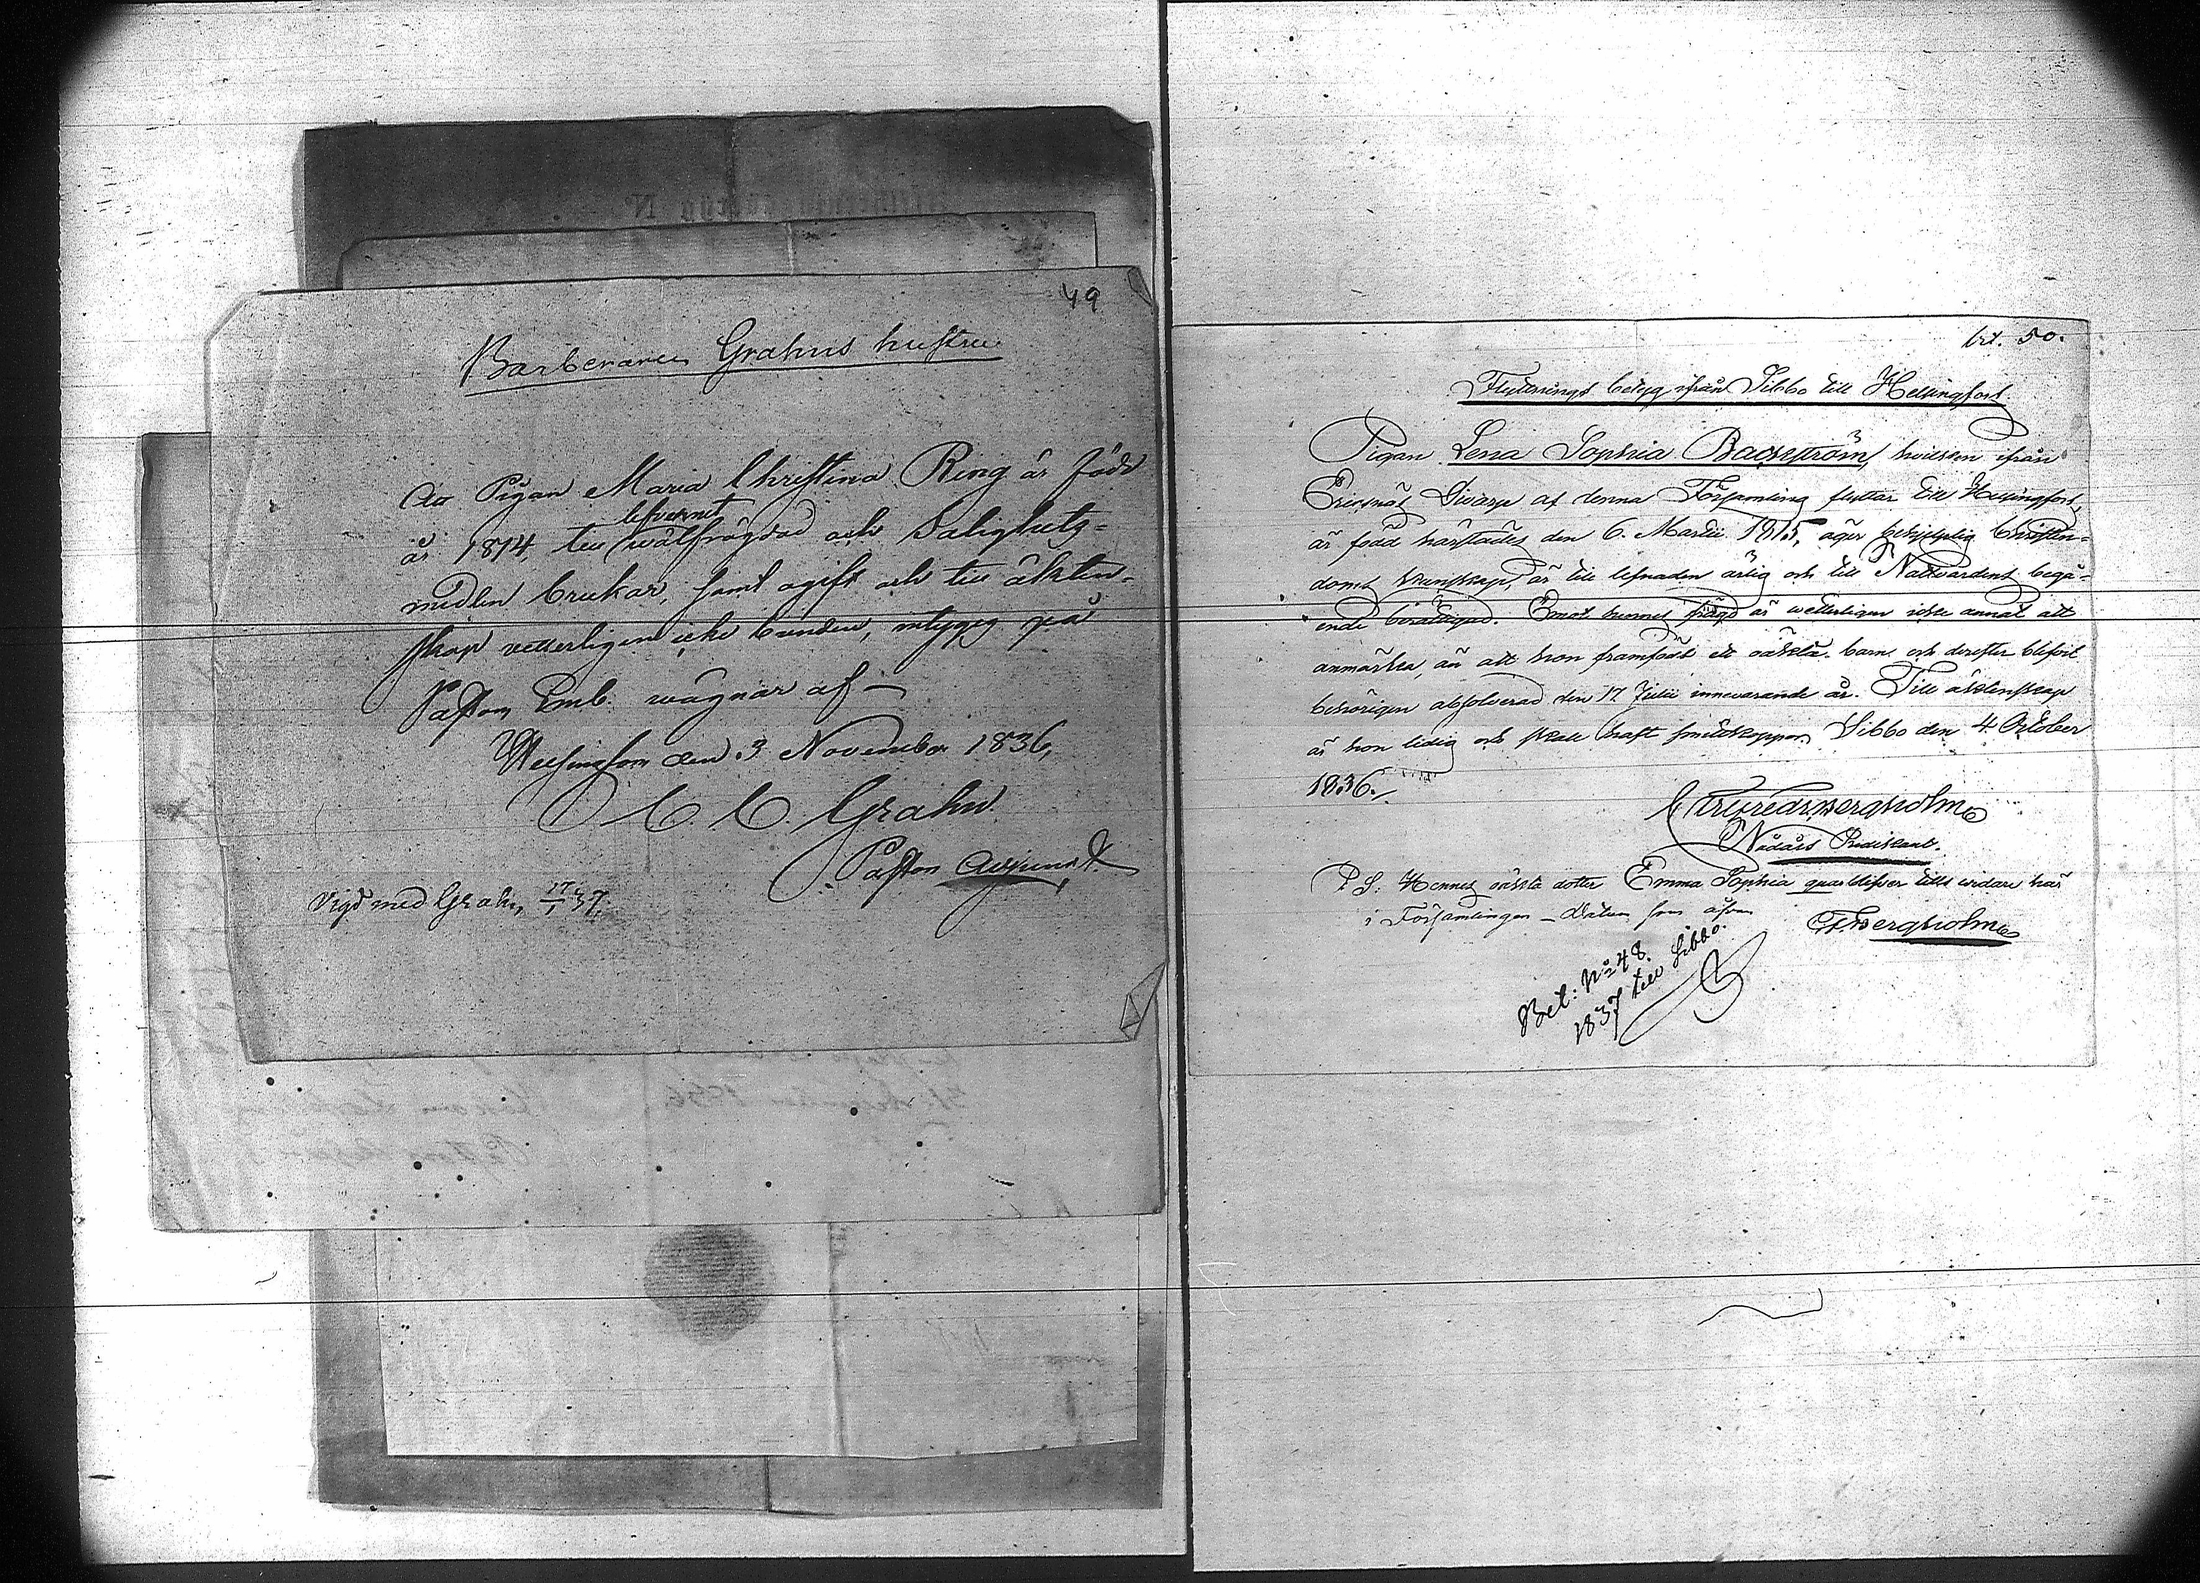 49
Barberaren Grahns hustru
Att Pigan Maria Christina Ring är född
år 1814, till lefvernet wälfrägdad och Salighets=
medlen brukar, samt ogift och till äkten=
skap vetterligen icke bunden, intygas på
Pastors Emb. wägnar af —
Helsingfors den 3 November 1836,
C. C. Grahn
Pastors Adjunct.
Vigd med Grahn, 17/1 37.
bet. 50.
Flyttnings betyg ifrån Sibbo till Helsingfors
Pigan Lena Sophia Backström, hvilken ifrån
Ericsnäs af denna Församling flyttar till Helsingfors,
är född härstädes den 6. Martii 1815, äger behjelplig Christen=
doms kunskap, är till lefnaden ärlig och till Nattvardens begå=
ende berättigad. Emot hennes frägd är wetterligen icke annat att
anmärka, än att hon framfödt ett oäkta barn och derefter blifvit
behörigen absolverad den 17 Julii innevarande år. Till äktenskap
är hon ledig och skall haft smittkoppor. Sibbo den 4. October
1836.
Bergholm
Nådårs Predikant.
P. S. Hennes oäkta dotter Emma Sophia quarblifver tills vidare här
i Församlingen — Datum som ofvan
Bergholm
Bet: No 48.
1837 till Sibbo.